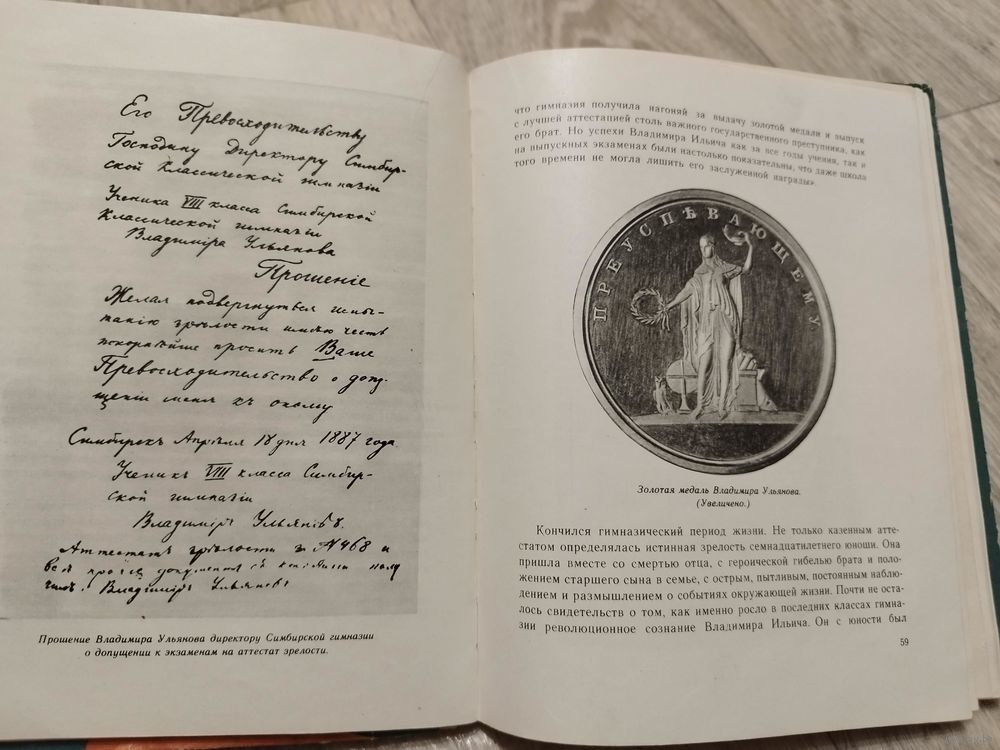 Его Превосходительству
Господину Директору Симбир-
ской классической гимназіи
Ученика VIII класса Симбирской
Классической гимназіи
Владиміра Ульянова
Прошеніе
Желая подвергнуться испы-
танію зрѣлости имѣю честь
покорнѣйше просить Ваше
Превосходительство о допу-
щеніи меня къ оному
Симбирскъ Апрѣля 18 дня 1887 года.
Ученикъ VIII класса Симбир-
ской гимназіи
Владиміръ Ульяновъ.
Аттестатъ зрѣлости за №468 и
всѣ прочіе документы съ копіями полу
чилъ. Владиміръ Ульяновъ
Прошение Владимира Ульянова директору Симбирской гимназии
о допущении к экзаменам на аттестат зрелости.
что гимназия получила нагоняй за выдачу золотой медали и выпуск
с лучшей аттестацией столь важного государственного преступника, как
его брат. Но успехи Владимира Ильича как за все годы учения, так и
на выпускных экзаменах были настолько показательны, что даже школа
того времени не могла лишить его заслуженной награды».
ПРЕУСПѢВАЮЩЕМУ
Золотая медаль Владимира Ульянова.
(Увеличено.)
Кончился гимназический период жизни. Не только казенным атте-
статом определялась истинная зрелость семнадцатилетнего юноши. Она
пришла вместе со смертью отца, с героической гибелью брата и поло-
жением старшего сына в семье, с острым, пытливым, постоянным наблю-
дением и размышлением о событиях окружающей жизни. Почти не оста-
лось свидетельств о том, как именно росло в последних классах гимна-
зии революционное сознание Владимира Ильича. Он с юности был
59